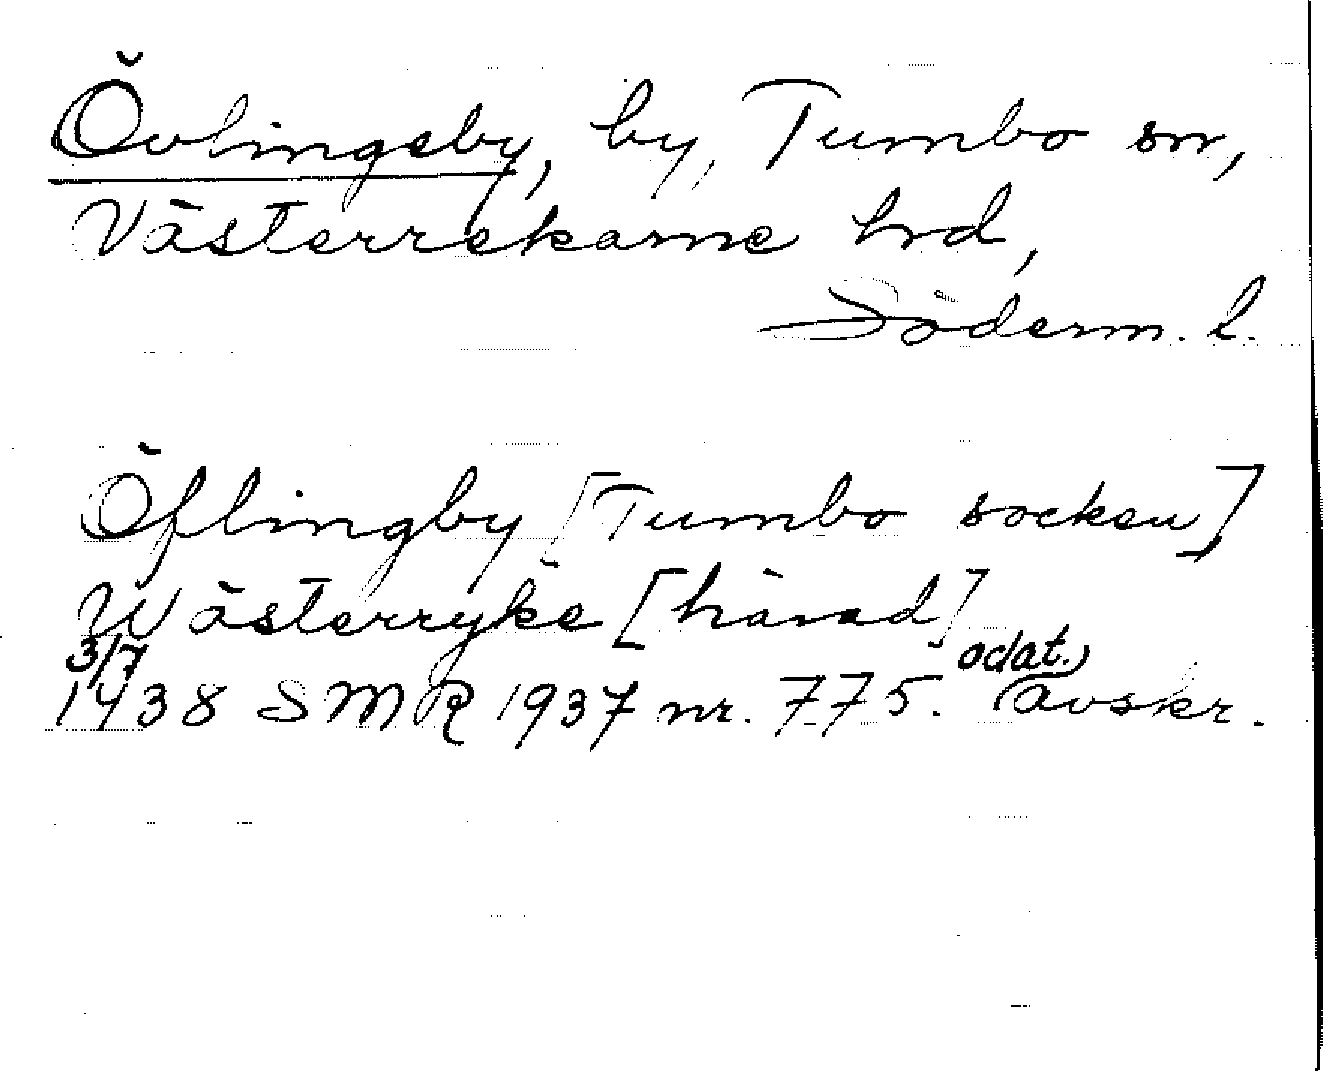 Övlingeby, by, Tumbo sn,
Västerrekarne hrd,
Söderm. l.
Öflingby [Tumbo socken]
Wästerryke [härad]
3/7
1438 SMR 1937 nr. 775. odat. avskr.